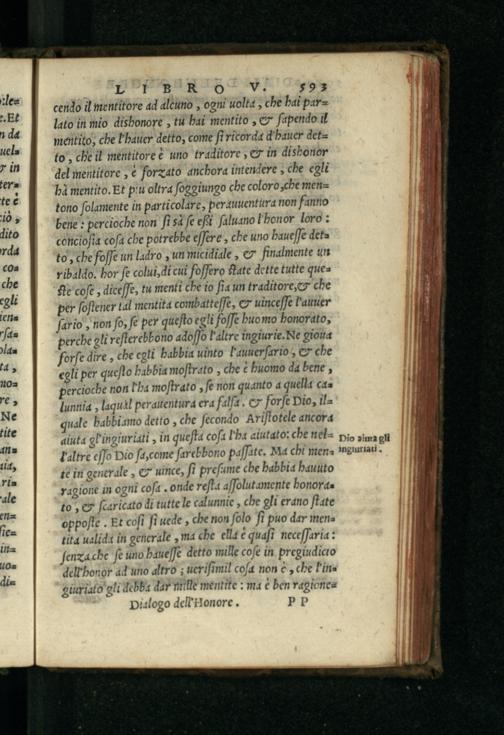 LIBRO V. 593
cendo il mentitore ad alcuno, ogni uolta, che hai par=
lato in mio dishonore, tu hai mentito, & sapendo il
mentito, che l'hauer detto, come si ricorda d'hauer det=
to, che il mentitore è uno traditore, & in dishonor
del mentitore, è forzato anchora intendere, che egli
hà mentito. Et piu oltra soggiungo che coloro, che men=
tono solamente in particolare, perauuentura non fanno
bene: percioche non si sà se eßi saluano l'honor loro:
conciosia cosa che potrebbe essere, che uno hauesse det=
to, che fosse un ladro, un micidiale, & finalmente un
ribaldo. hor se colui, di cui fossero state dette tutte que=
ste cose, dicesse, tu menti che io sia un traditore, & che
per sostener tal mentita combattesse, & uincesse l'auuer
sario, non so, se per questo egli fosse huomo honorato,
perche gli resterebbono adosso l'altre ingiurie. Ne gioua
forse dire, che egli habbia uinto l'auuersario, & che
egli per questo habbia mostrato, che è huomo da bene,
percioche non l'ha mostrato, se non quanto a quella ca=
lunnia, laqual perauentura era falsa. & forse Dio, il=
quale habbiamo detto, che secondo Aristotele ancora
aiuta gl'ingiuriati, in questa cosa l'ha aiutato: che nel=
l'altre esso Dio sa, come sarebbono passate. Ma chi men=
te in generale, & uince, si presume che habbia hauuto
ragione in ogni cosa. onde resta assolutamente honora=
to, & scaricato di tutte le calunnie, che gli erano state
opposte. Et così si uede, che non solo si puo dar men=
tita ualida in generale, ma che ella è quasi necessaria:
senza che se uno hauesse detto mille cose in pregiudicio
dell'honor ad uno altro; uerisimil cosa non è, che l'in=
giuriato gli debba dar mille mentite: ma è ben ragione=
Dialogo dell'Honore. PP
Dio aiuta gli
ingiuriati.